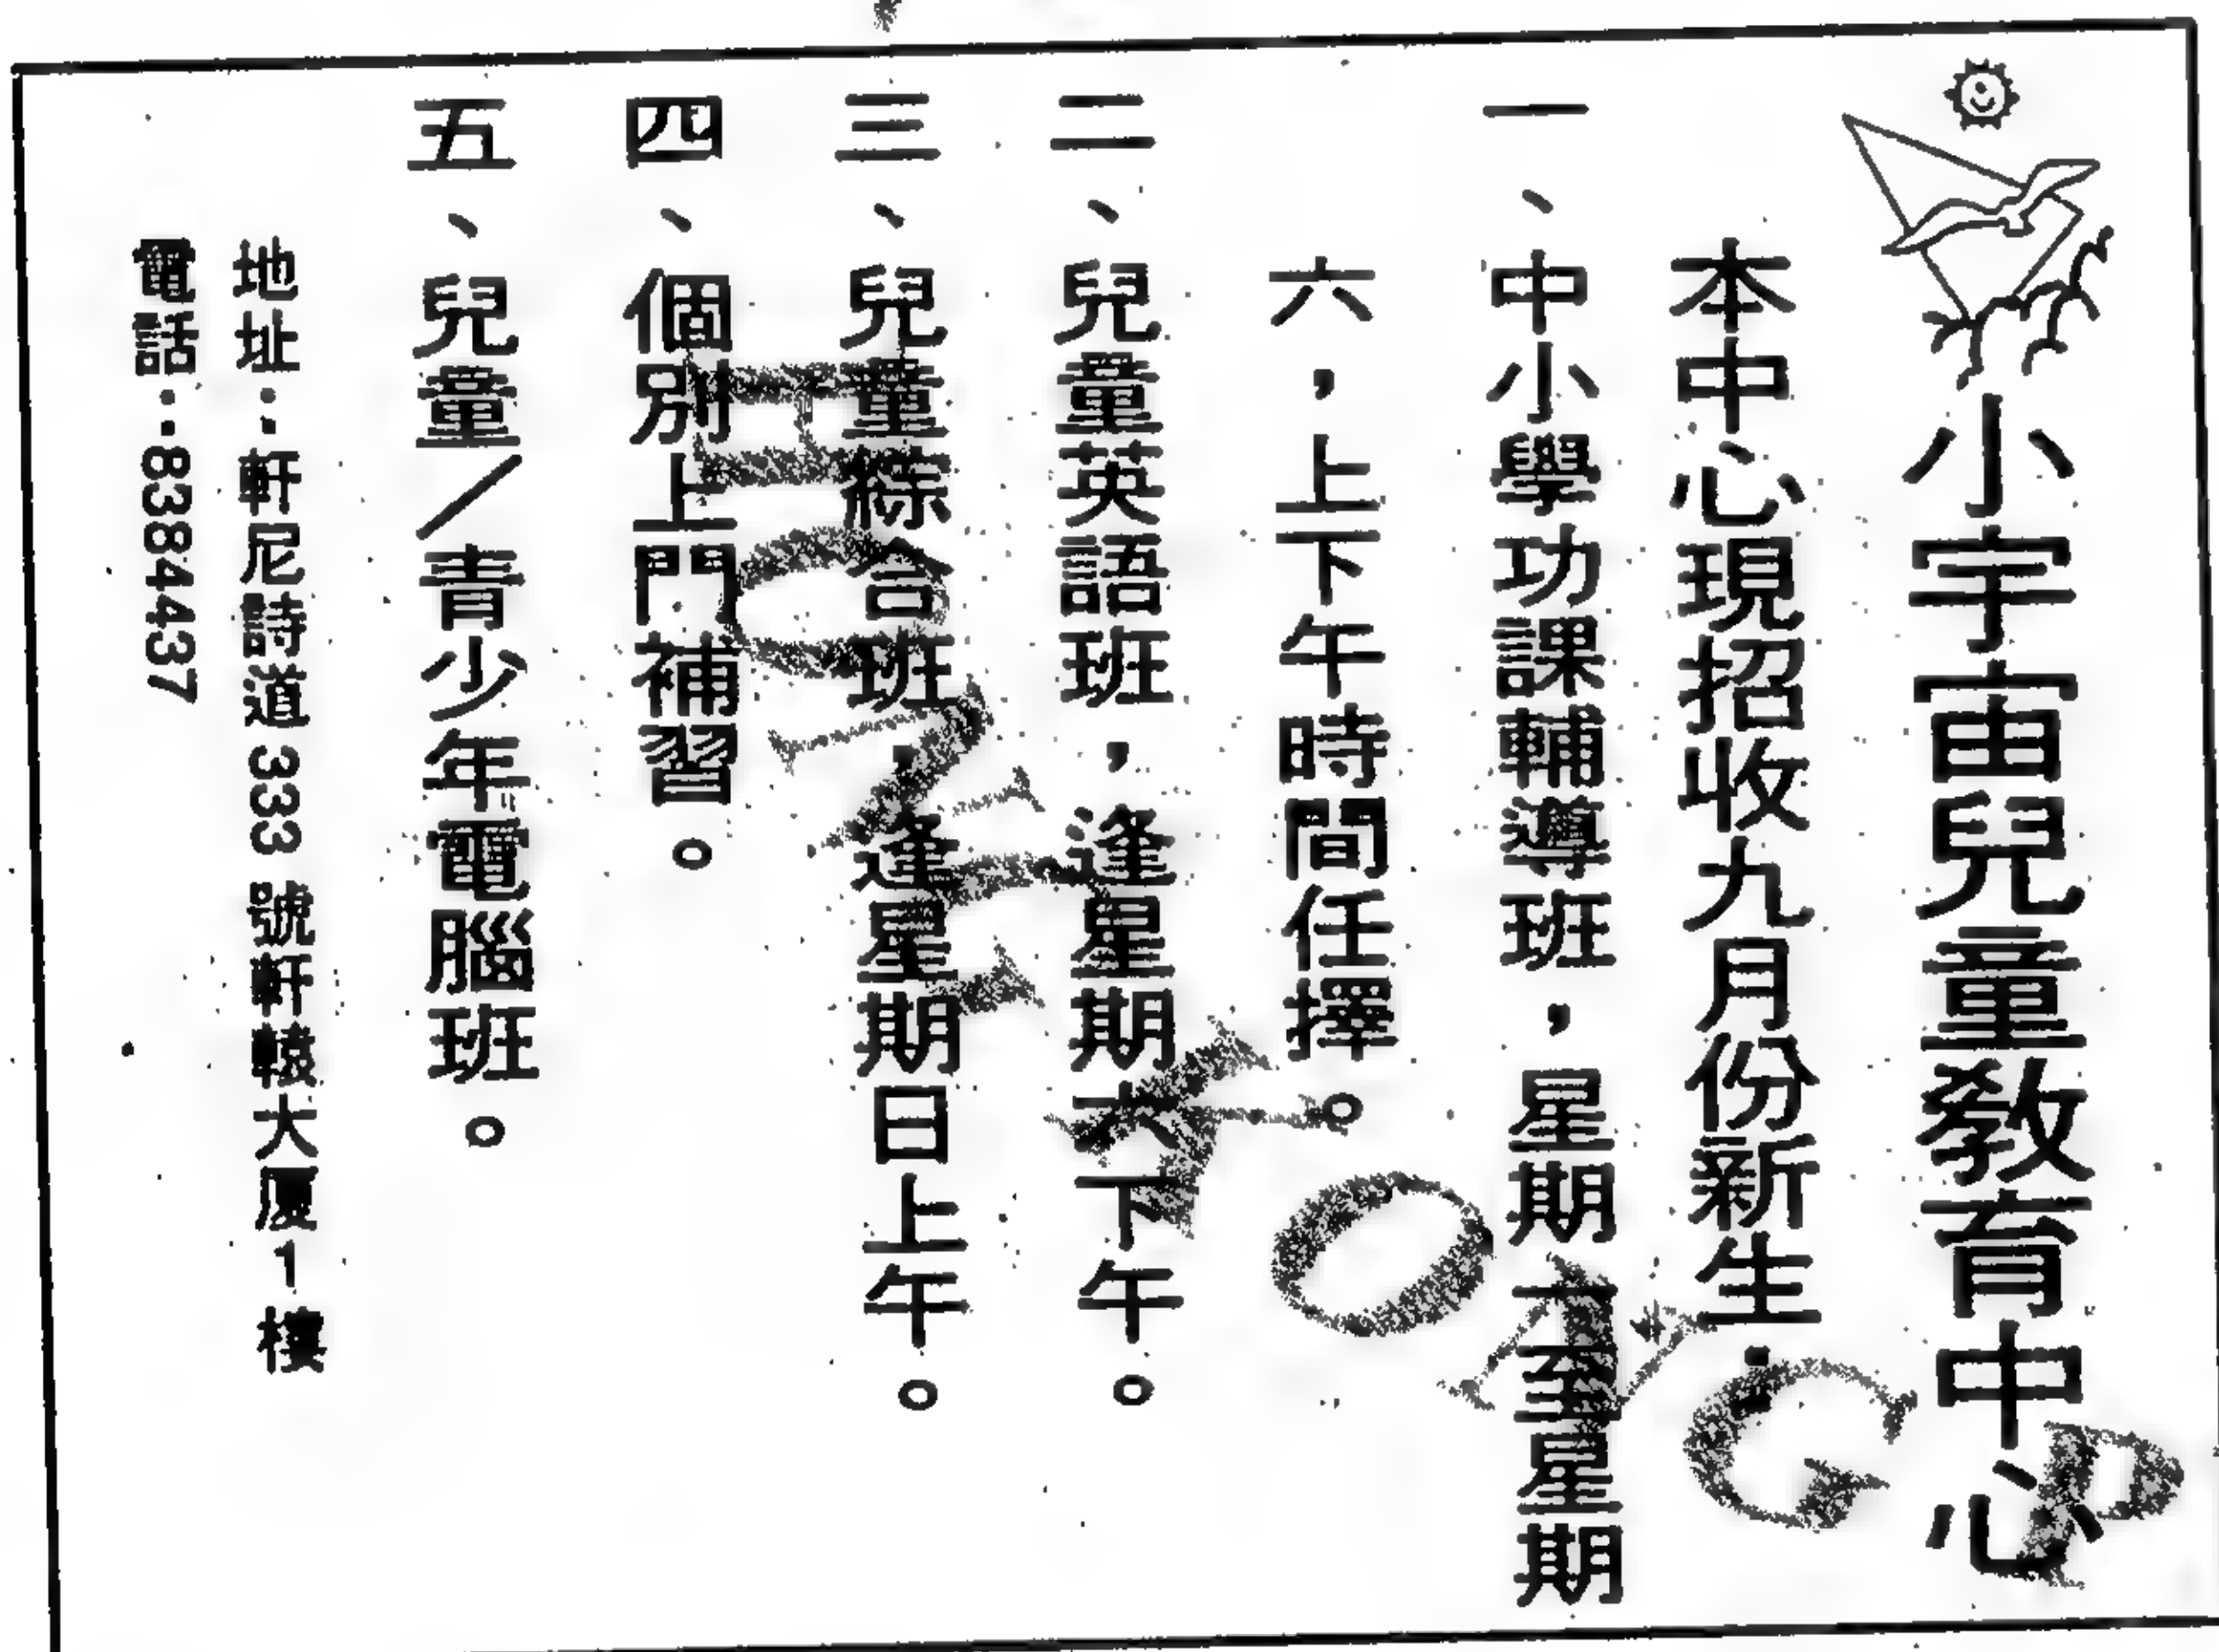 小宇宙兒童教育中心
本中心現招收九月份新生：
一、中小學功課輔導班，星期一至星期
六，上下午時間任擇。
二、兒童英語班，逢星期六下午。
三、兒童綜合班，逢星期日上午。
四、個別上門補習。
五、兒童／青少年電腦班。
地址：軒尼詩道 333 號軒轅大厦 1 樓
電話：8384437